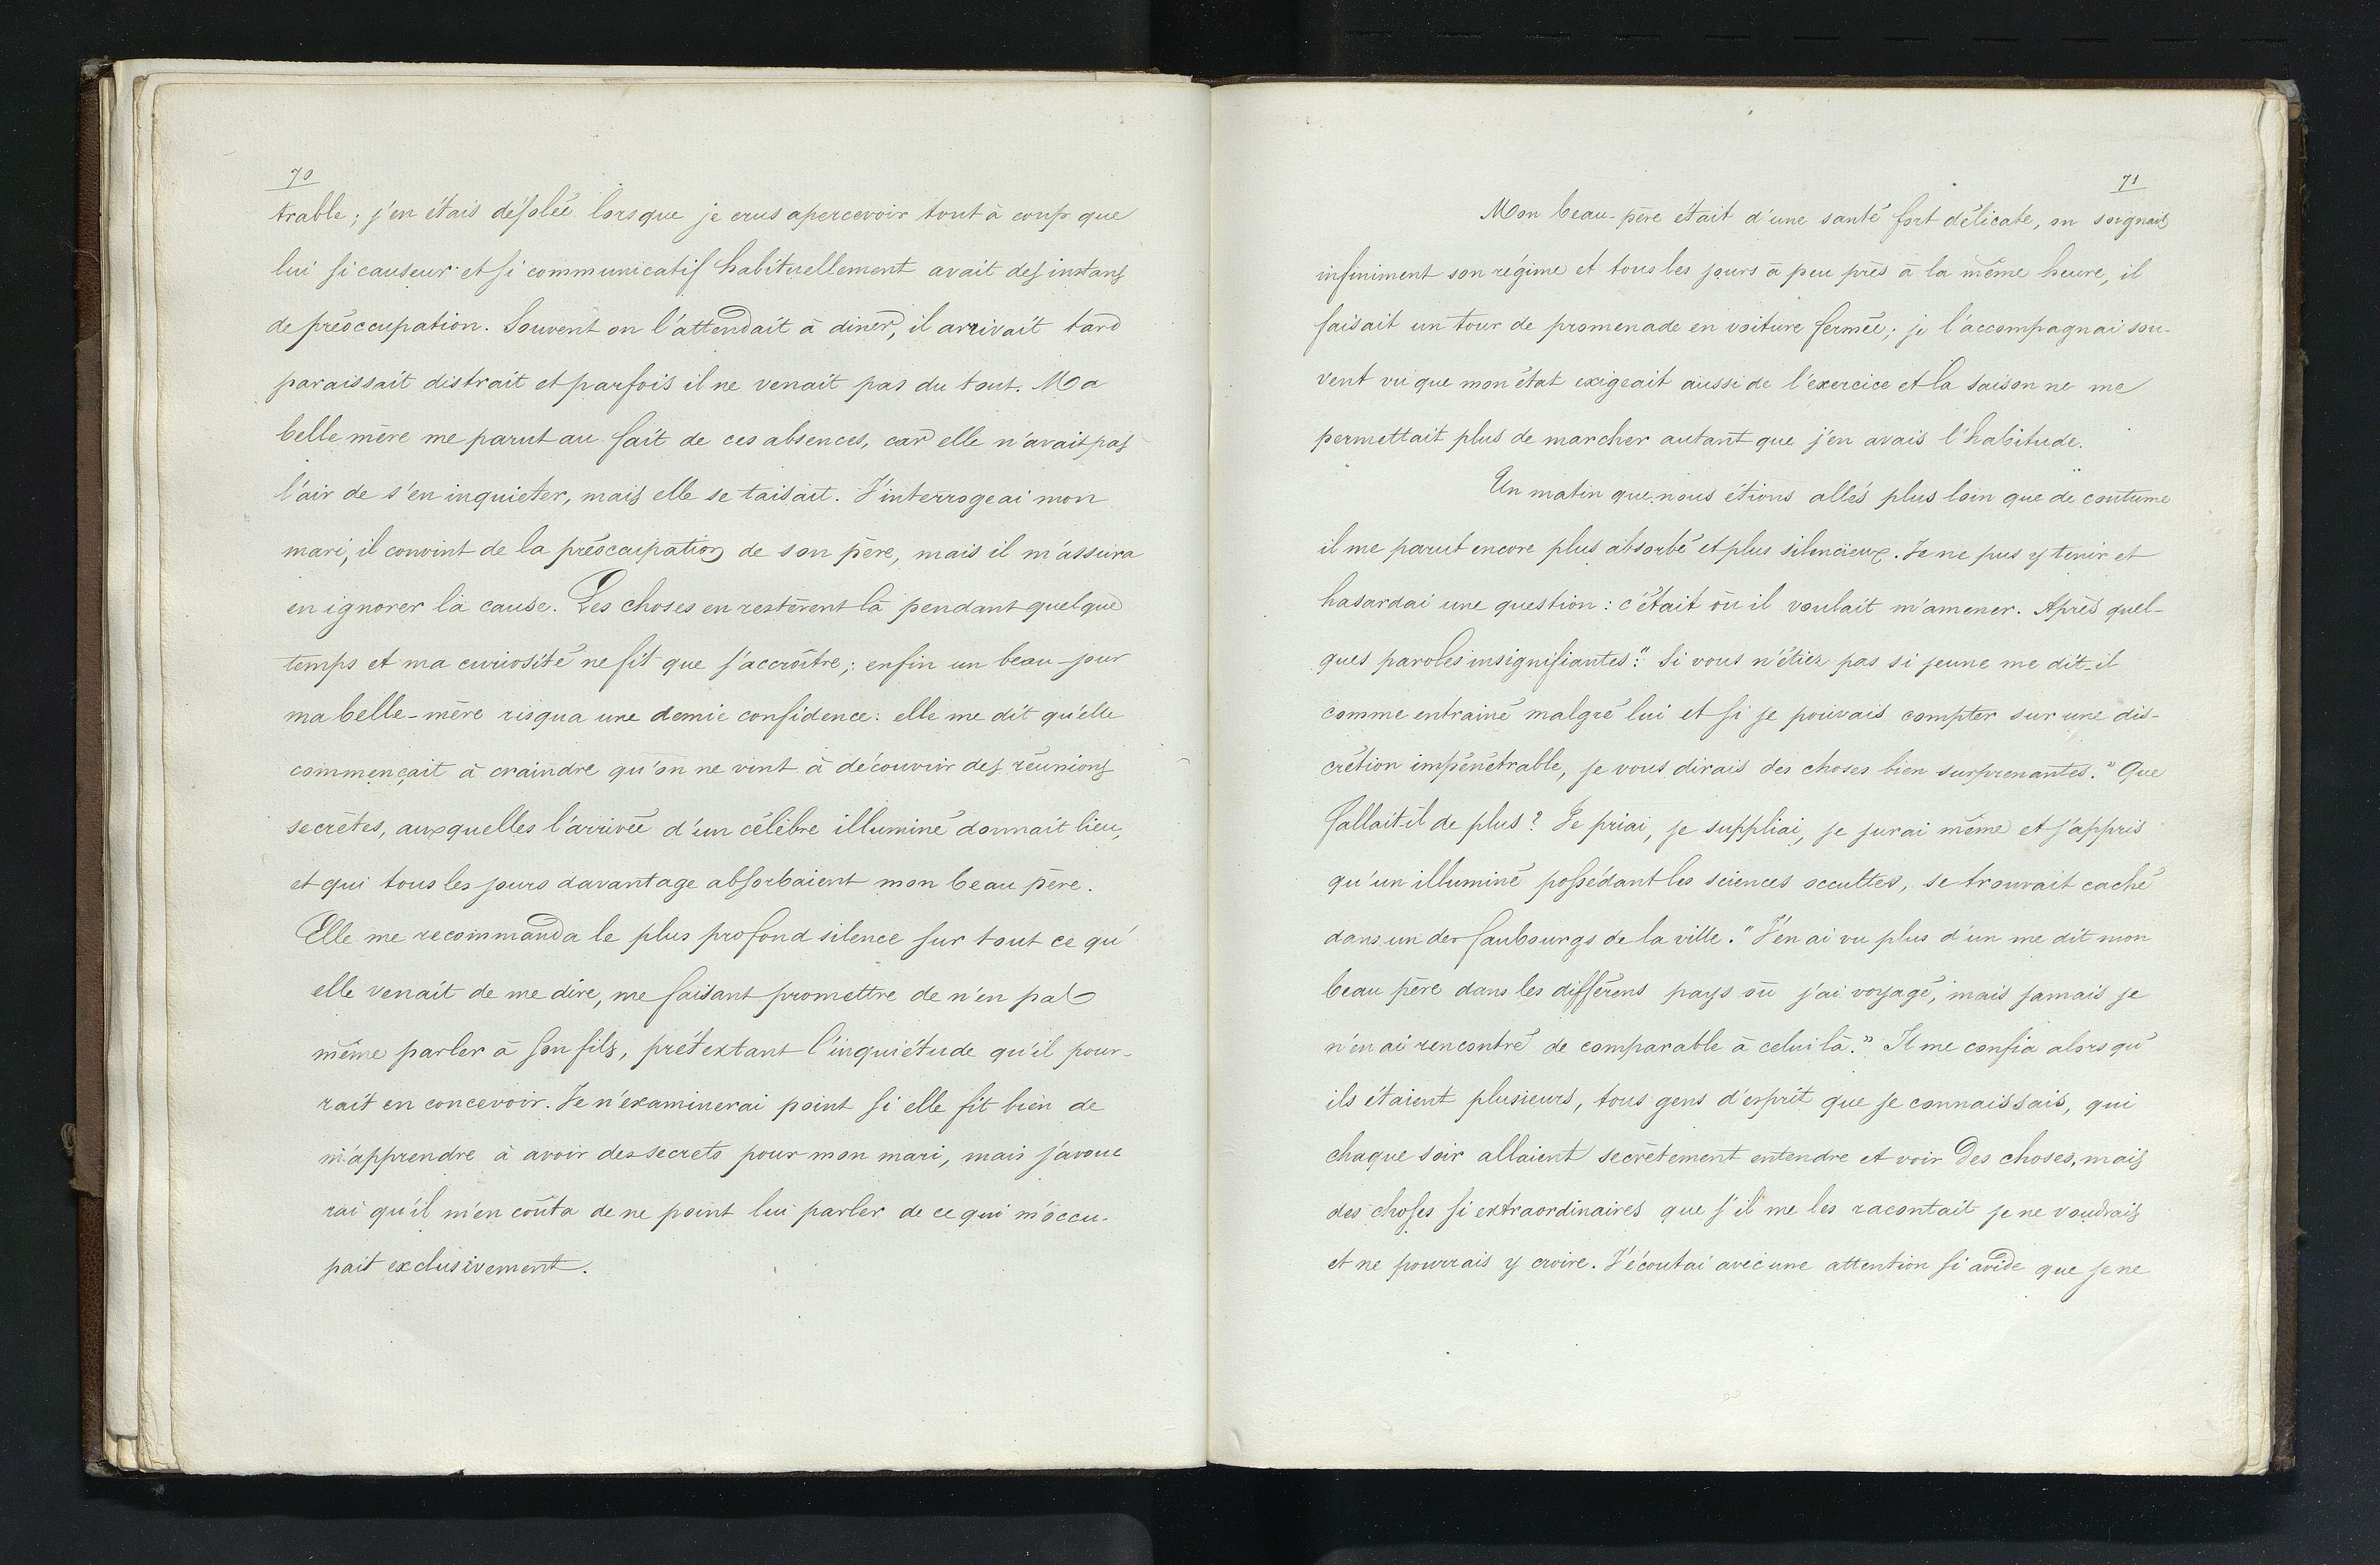 70
trable; j'en étais désolée lorsque je crus apercevoir tout à coup que
lui si causeur et si communicatif habituellement avait des instans
de préoccupation. Souvent on l'attendait à diner, il arrivait tard
paraissait distrait et parfois il ne venait pas du tout. Ma
belle mère me parut au fait de ces absences, car elle n'avait pas
l'air de s'en inquieter, mais elle se taisait. J'interrogeai mon
mari, il convint de la préoccupation de son père, mais il m'assura
en ignorer la cause. Les choses en restèrent là pendant quelque
temps et ma curiosité ne fit que s'accroître; enfin un beau jour
ma belle-mère risqua une demie confidence: elle me dit qu'elle
commençait à craindre qu'on ne vint à découvrir des réunions
secrètes, auxquelles l'arrivée d'un célèbre illuminé donnait lieu,
et qui tous les jours davantage absorbaient mon beau père.
Elle me recommanda le plus profond silence sur tout ce qu'
elle venait de me dire, me faisant promettre de n'en pas
même parler à son fils, prétextant l'inquiétude qu'il pour-
rait en concevoir. Je n'examinerai point si elle fit bien de
m'apprendre à avoir des secrets pour mon mari, mais j'avoue
rai qu'il m'en coûta de ne point lui parler de ce qui m'occu-
pait exclusivement.
71
Mon beau-père était d'une santé fort délicate, on soignait
infiniment son régime et tous les jours à peu près à la même heure, il
faisait un tour de promenade en voiture fermée; je l'accompagnai sou-
vent vu que mon état exigeait aussi de l'exercice et la saison ne me
permettait plus de marcher autant que j'en avais l'habitude.
Un matin que nous étions allés plus loin que de coutume
il me parut encore plus absorbé et plus silencieux. Je ne pus y tenir et
hasardai une question: c'était où il voulait m'amener. Après quel-
ques paroles insignifiantes: "Si vous n'étiez pas si jeune me dit-il
comme entrainé malgré lui et si je pouvais compter sur une dis-
crétion impénétrable, je vous dirais des choses bien surprenantes." Que
fallait-il de plus? Je priai, je suppliai, je jurai même et j'appris
qu'un illuminé possédant les sciences occultes, se trouvait caché
dans un des faubourgs de la ville. "J'en ai vu plus d'un me dit mon
beau père dans les différens pays où j'ai voyagé, mais jamais je
n'en ai rencontré de comparable à celui là." Il me confia alors qu'
ils étaient plusieurs, tous gens d'esprit que je connaissais, qui
chaque soir allaient secrètement entendre et voir des choses, mais
des choses si extraordinaires que s'il me les racontait je ne voudrais
et ne pourrais y croire. J'écoutai avec une attention si avide que je ne